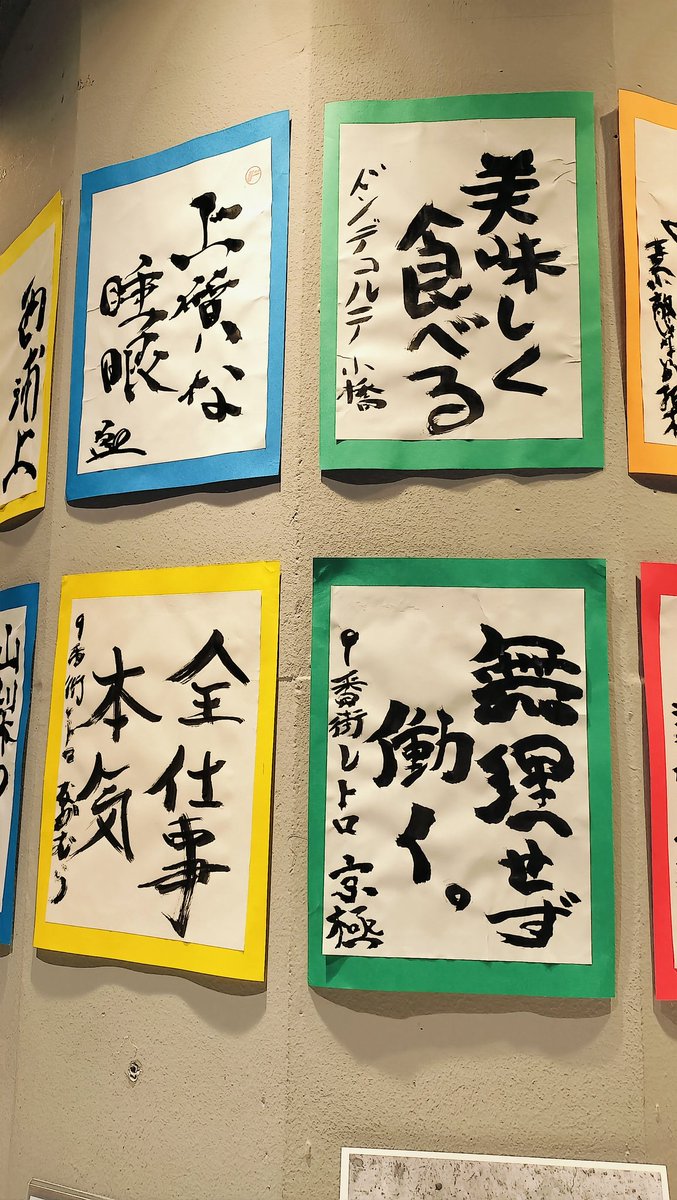 美味しく
食べる
ドンデコルテ 小橋
上質な
睡眠
浦上
無理せず
働く。
9番街レトロ 京極
全仕事
本気
9番街レトロ なかむら